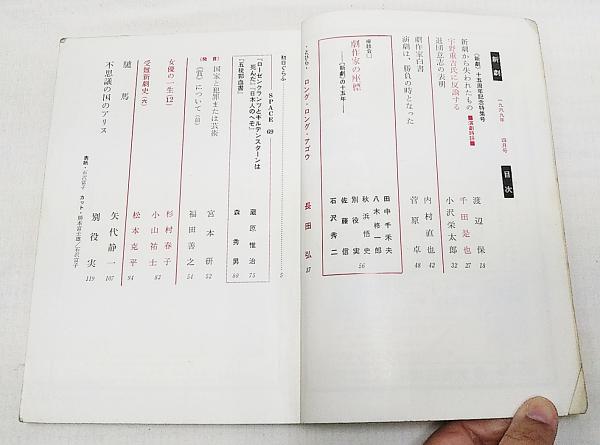 新劇
一九六九年 四月号
目次
《新劇》十五周年記念特集号
新劇から失われたもの
渡辺保 18
宇野重吉氏に反論する
■演劇時評■
千田是也 27
退団立志の表明
小沢栄太郎 32
劇作家白書
内村直也 42
演劇は、勝負の時となった
菅原卓 48
座談会
劇作家の座標
——《新劇》の十五年——
田中千禾夫
八木柊一郎
秋浜悟史
別役実
佐藤信
石沢秀二
56
ロング・ロング・アゴウ
長田弘 87
初日ぐらふ 5
SPACE 69
「ローゼンクランツとギルデンスターンは死んだ」「日本人のへそ」
蔵原惟治 75
「五稜郭血書」
森秀男 80
国家と犯罪または芸術
宮本研 52
《質》について
福田善之 51
女優の一生(12)
杉村春子
小山祐士 82
受難新劇史(六)
松本克平 94
矢代静一 107
不思議の国のアリス
別役実 119